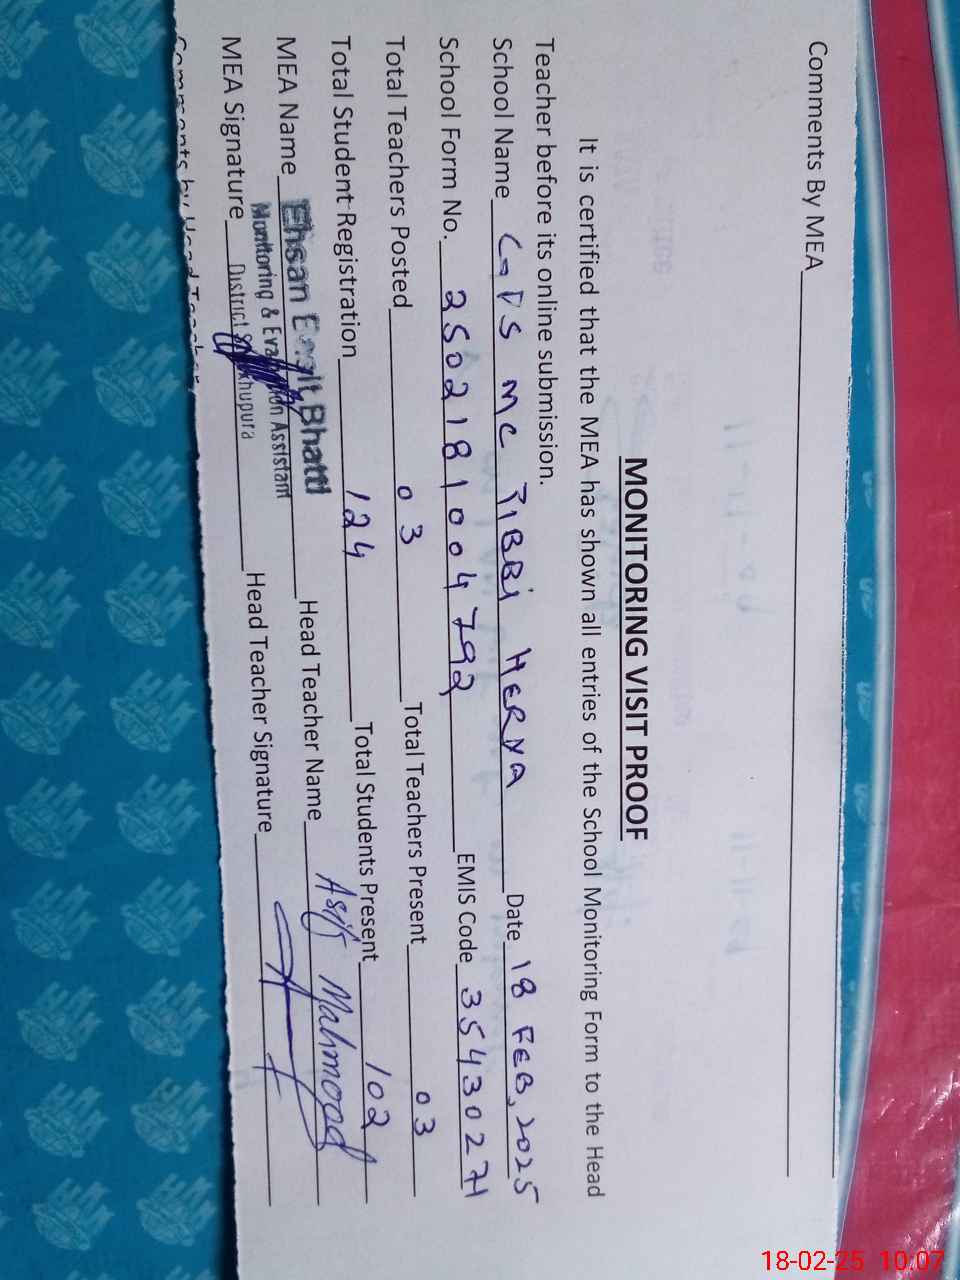 Comments By MEA
MONITORING VISIT PROOF
It is certified that the MEA has shown all entries of the School Monitoring Form to the Head
Teacher before its online submission.
School Name GPS MC TIBBI HERYA Date 18 FEB, 2025
School Form No. 2502181004792 EMIS Code 35430271
Total Teachers Posted 03 Total Teachers Present 03
Total Student Registration 124 Total Students Present 102
MEA Name Ehsan Bhatti Head Teacher Name Asif Mahmood
Monitoring & Evaluation Assistant
MEA Signature District Sheikhupura Head Teacher Signature
Comments by Head Teacher
18-02-25 10:07